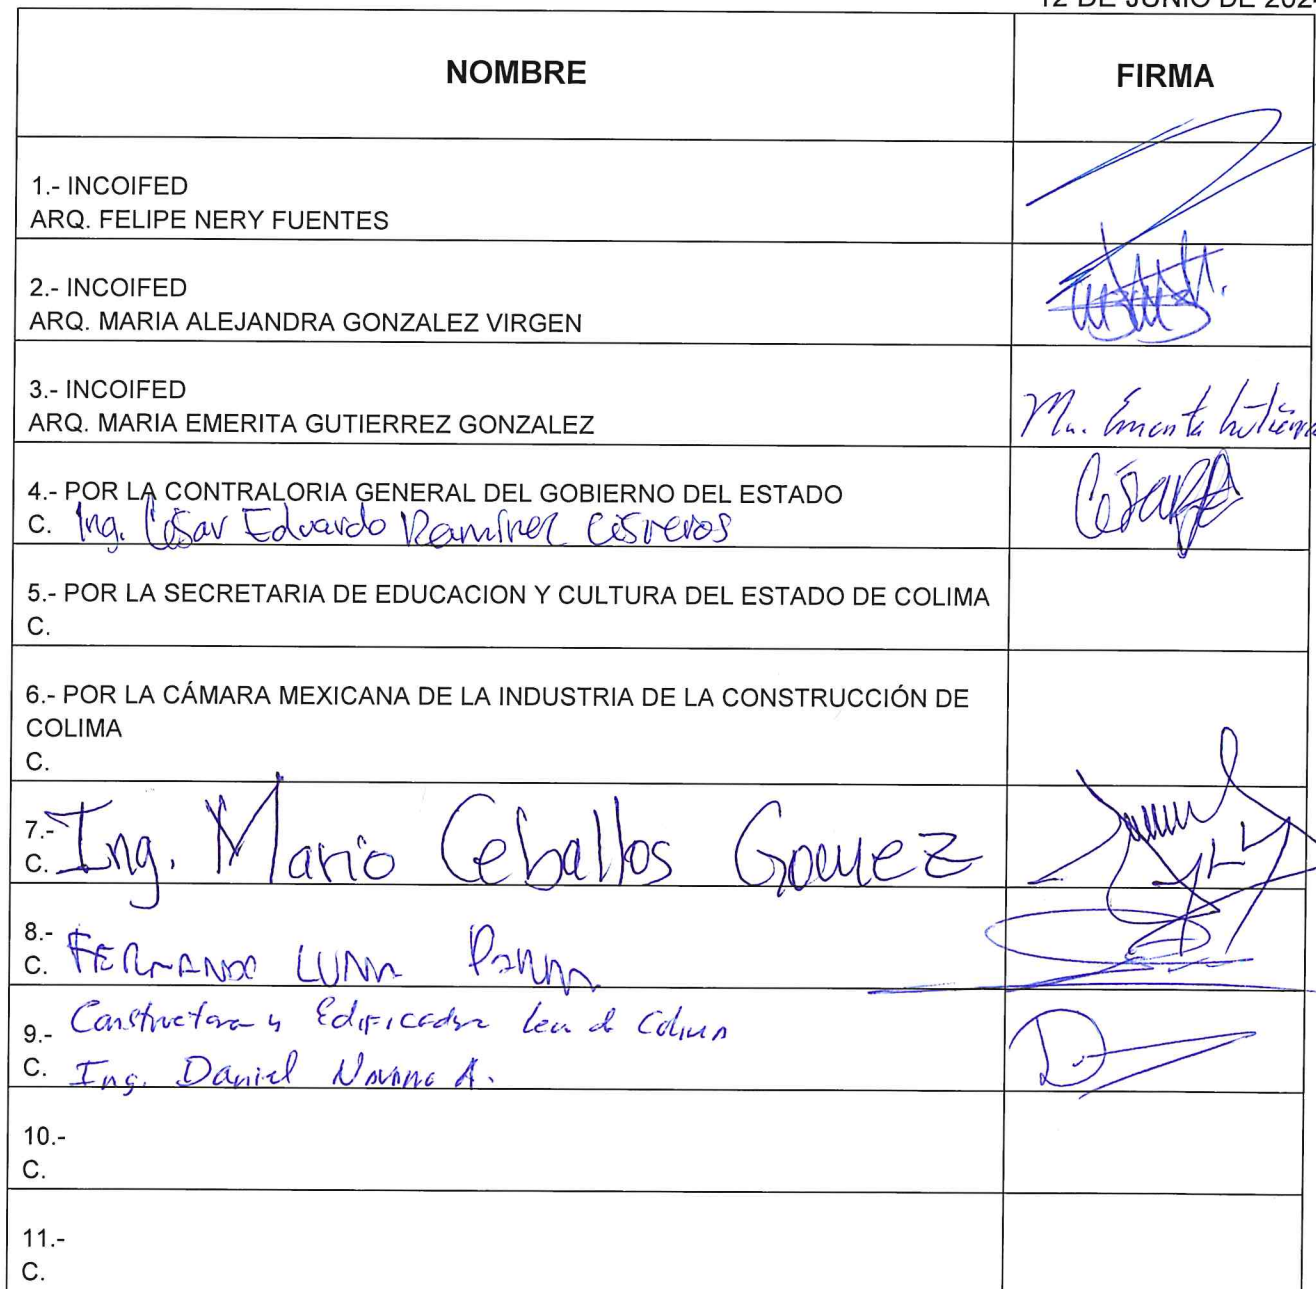 12 DE JUNIO DE 202
NOMBRE
FIRMA
1.- INCOIFED
ARQ. FELIPE NERY FUENTES
2.- INCOIFED
ARQ. MARIA ALEJANDRA GONZALEZ VIRGEN
3.- INCOIFED
ARQ. MARIA EMERITA GUTIERREZ GONZALEZ
Ma. Emerita Gutiérrez
4.- POR LA CONTRALORIA GENERAL DEL GOBIERNO DEL ESTADO
C. Ing. César Eduardo Ramírez Cisneros
5.- POR LA SECRETARIA DE EDUCACION Y CULTURA DEL ESTADO DE COLIMA
C.
6.- POR LA CÁMARA MEXICANA DE LA INDUSTRIA DE LA CONSTRUCCIÓN DE
COLIMA
C.
7.-
C. Ing. Mario Ceballos Gomez
8.-
C. FERNANDO LUNA
9.- Constructora y Edificadora de Colima
C. Ing. Daniel A.
10.-
C.
11.-
C.